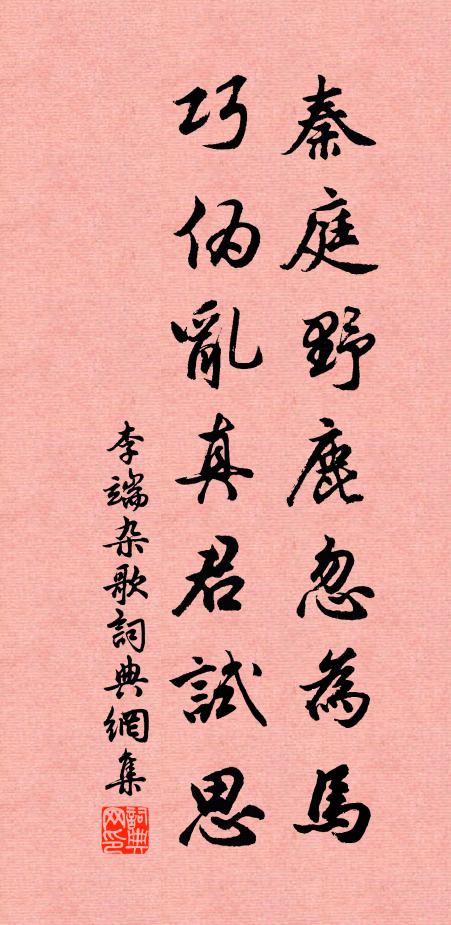 秦庭野鹿忽為馬
巧偽亂真君試思
李端杂歌詞典網集
詞典网印